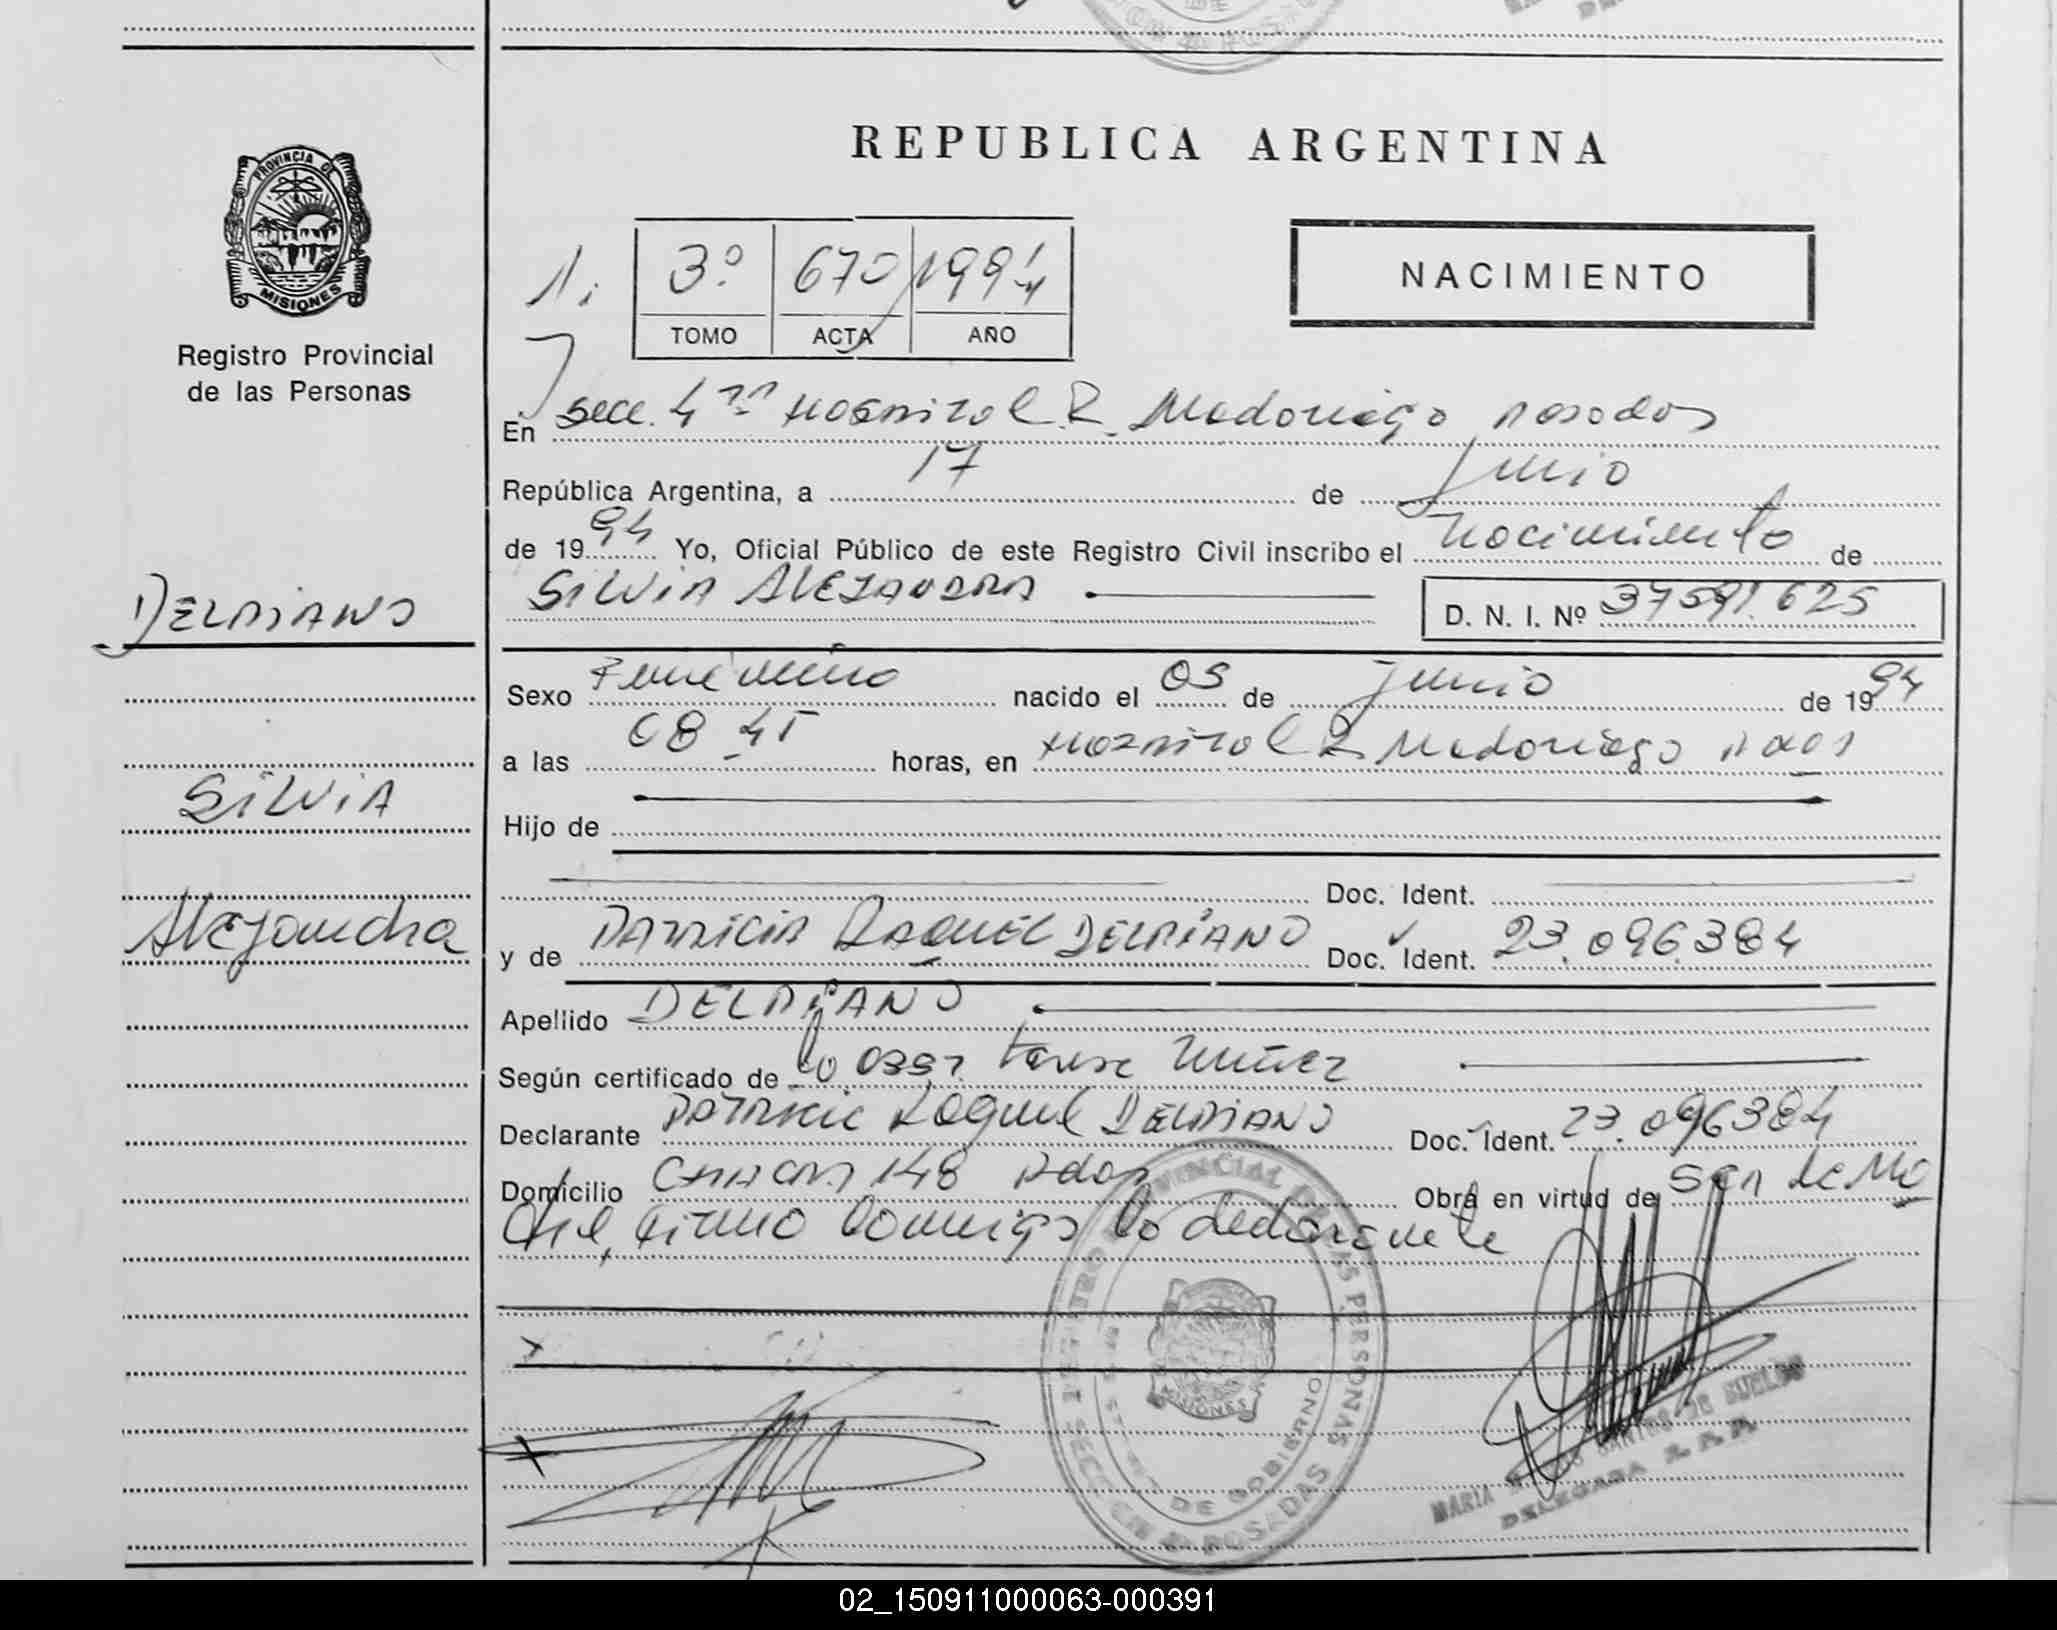 REPUBLICA ARGENTINA
PROVINCIA DE
MISIONES
Registro Provincial
de las Personas
3º 670 1994
TOMO ACTA AÑO
NACIMIENTO
En Secc. 4ta Hospital R. Madariaga Posadas
República Argentina, a 17 de Junio
de 1994 Yo, Oficial Público de este Registro Civil inscribo el Nacimiento de
SILVIA ALEJANDRA D. N. I. Nº 37591.625
DELPIANO
Sexo Femenino nacido el 03 de Junio de 1994
a las 08 45 horas, en Hospital R Madariaga Pdas
SILVIA
Hijo de
Doc. Ident.
Alejandra
y de PATRICIA RAQUEL DELPIANO Doc. Ident. 23.096.384
Apellido DELPIANO
Según certificado de la Obst. Núñez
Declarante Patricia Raquel DELPIANO Doc. Ident. 23.096384
Domicilio 148 Pdas Obra en virtud de ser la Ma
dre, Firma Conmigo la declarante
REGISTRO PROVINCIAL DE LAS PERSONAS
MISIONES
DE GOBIERNO
POSADAS
MARIA SANTOS DE
DELEGADA
02_150911000063-000391